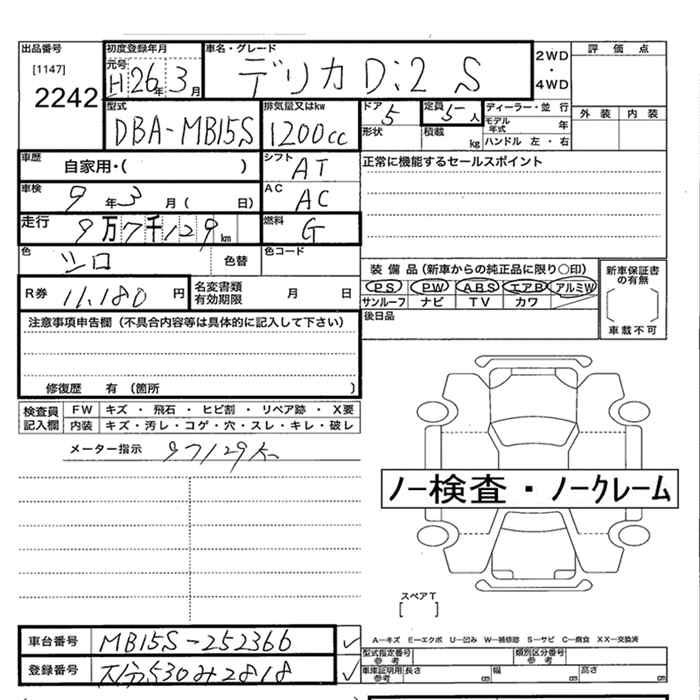 出品番号
[1147]
2242
初度登録年月
元号
H 26年 3月
車名・グレード
デリカ D:2 S
2WD
・
4WD
評価点
外装 内装
型式
DBA-MB15S
排気量又はkw
1200cc
ドア 5
形状
定員 5人
積載 kg
ディーラー・並行
モデル年式 年
ハンドル 左・右
車歴 自家用・( )
シフト AT
正常に機能するセールスポイント
車検 9年 3月( 日)
AC AC
走行 9万7千129km
燃料 G
色 シロ 色替
色コード
R券 11,180円
名変書類有効期限 月 日
装備品(新車からの純正品に限り○印)
PS PW ABS エアB アルミW
サンルーフ ナビ TV カワ
新車保証書の有無
[ ]
車載不可
後日品
注意事項申告欄(不具合内容等は具体的に記入して下さい)
修復歴 有 (箇所 )
検査員記入欄
FW キズ・飛石・ヒビ割・リペア跡・X要
内装 キズ・汚レ・コゲ・穴・スレ・キレ・破レ
メーター指示 97129K
ノー検査・ノークレーム
スペアT
[ ]
車台番号 MB15S-252366 ✓
登録番号 大分530み2818 ✓
A―キズ E―エクボ U―凹み W―補修跡 S―サビ C―腐食 XX―交換済
型式指定番号参考 類別区分番号参考
車庫証明用参考 長さ cm 幅 cm 高さ cm